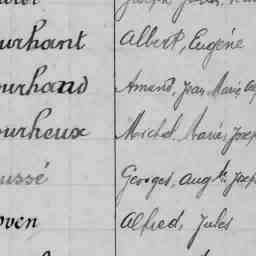 urhant Albert, Eugène
ourhand Amand, Jean Marie,
ourheux Michel, Marie, Josep
ussé Georges, Aug te Josep
oven Alfred, Jules